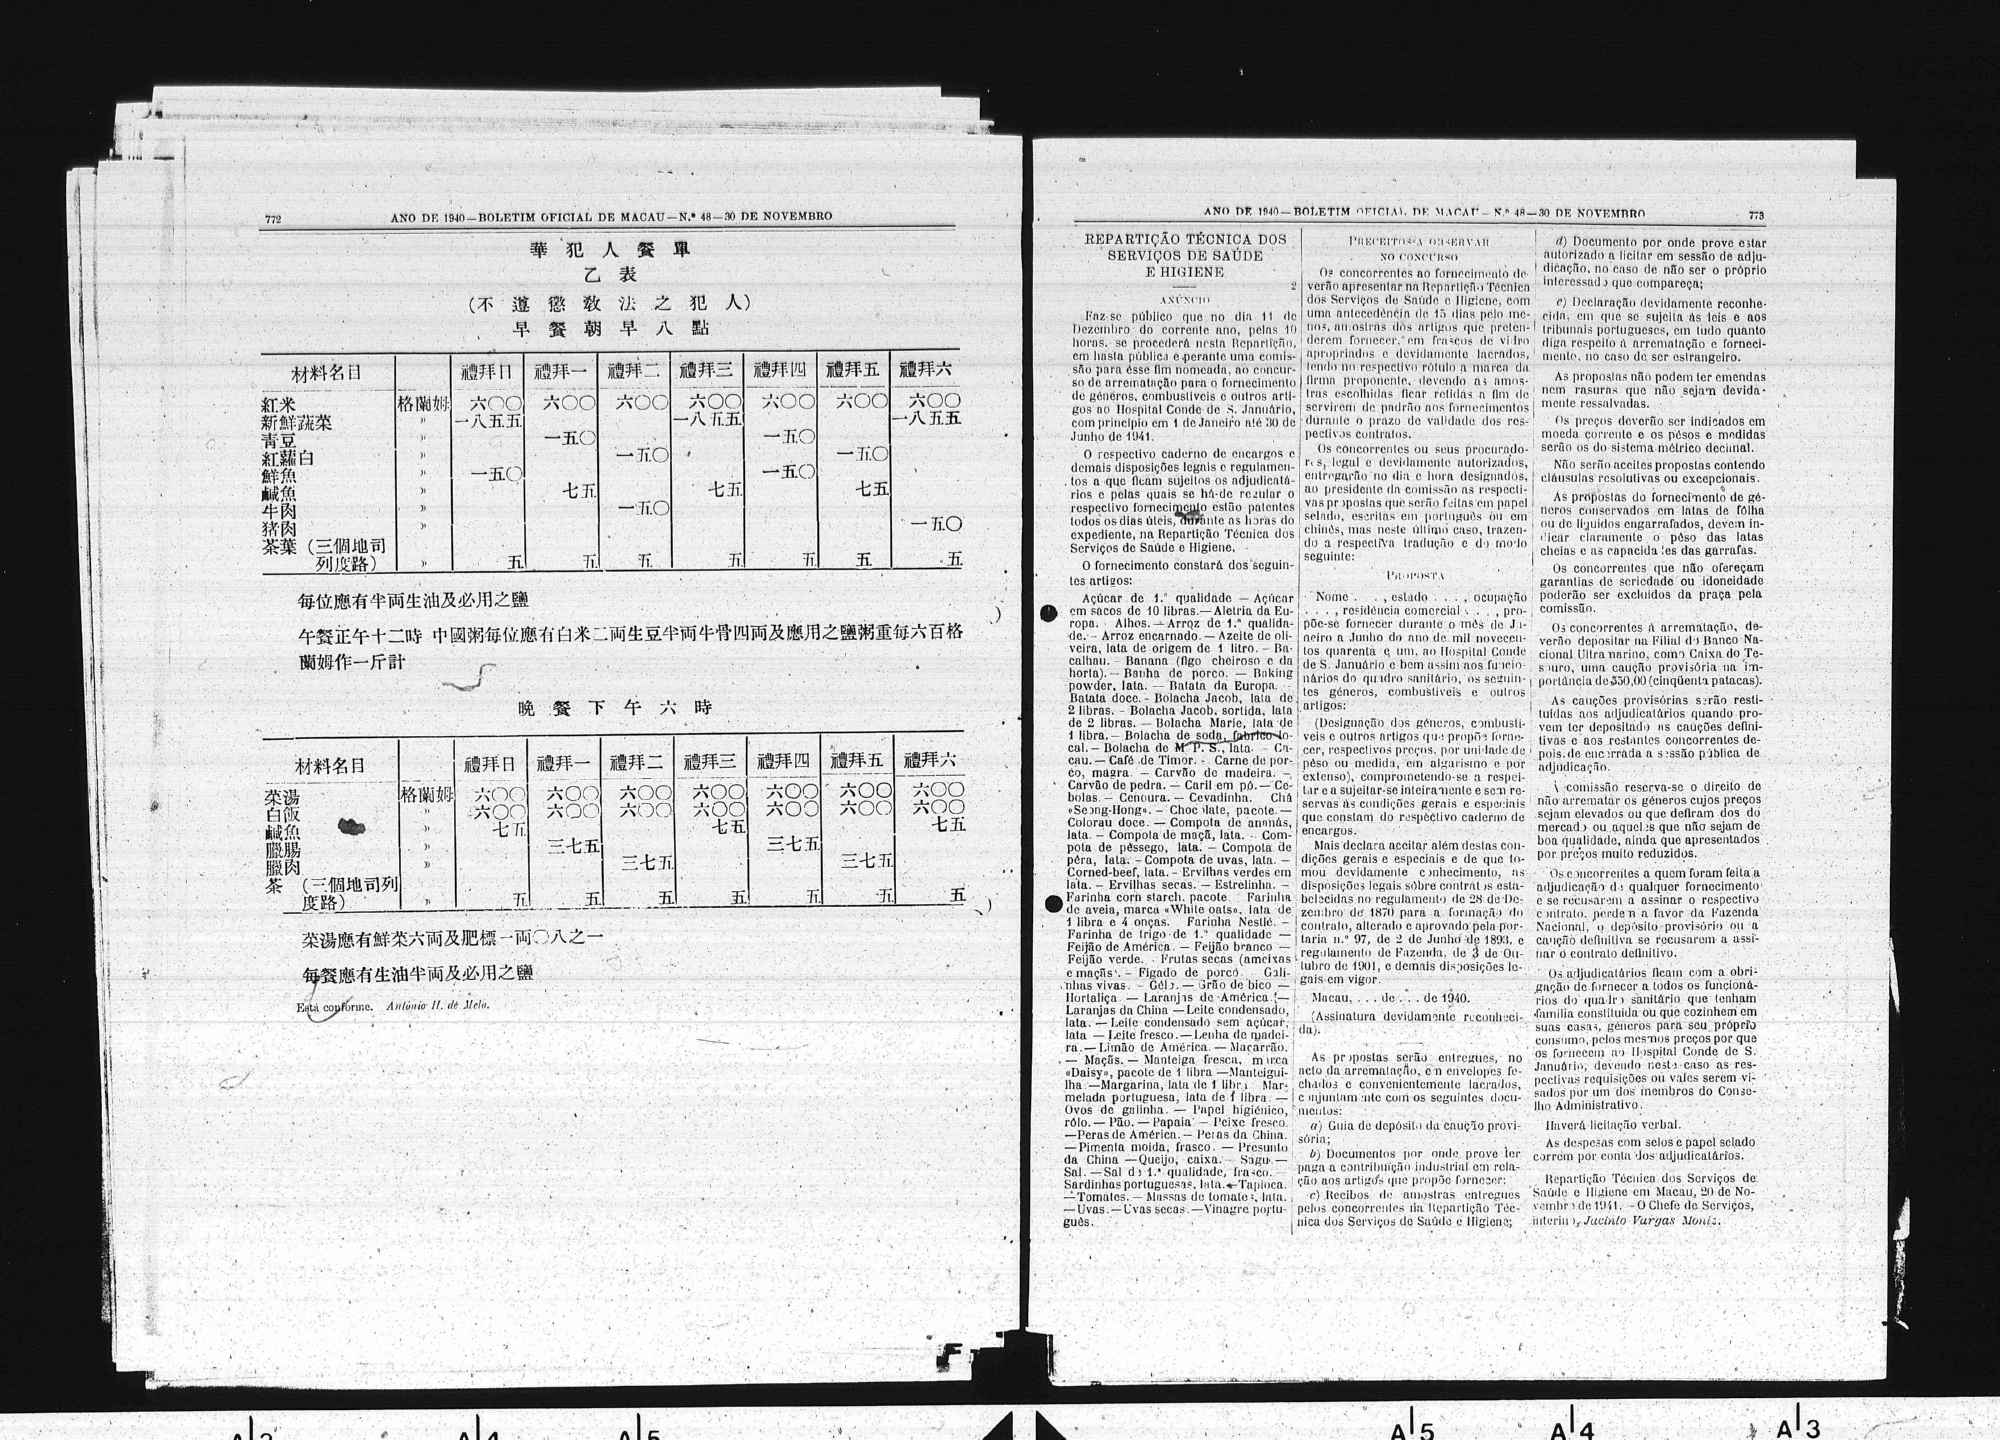 772
ANO DE 1940—BOLETIM OFICIAL DE MACAU—N.º 48—30 DE NOVEMBRO
華犯人餐單
乙表
(不遵懲敎法之犯人)
早餐朝早八點
材料名目 禮拜日 禮拜一 禮拜二 禮拜三 禮拜四 禮拜五 禮拜六
紅米 格蘭姆 六〇〇 六〇〇 六〇〇 六〇〇 六〇〇 六〇〇 六〇〇
新鮮蔬菜 » 一八五五 一八五五 一八五五
靑豆 » 一五〇 一五〇
紅蘿白 » 一五〇 一五〇
鮮魚 » 一五〇 一五〇
鹹魚 » 七五 七五 七五
牛肉 » 一五〇
猪肉 » 一五〇
茶葉 (三個地司
列度路) » 五 五 五 五 五 五 五
每位應有半両生油及必用之鹽
午餐正午十二時 中國粥每位應有白米二両生豆半両牛骨四両及應用之鹽粥重每六百格
蘭姆作一斤計
晚餐下午六時
材料名目 禮拜日 禮拜一 禮拜二 禮拜三 禮拜四 禮拜五 禮拜六
菜湯 格蘭姆 六〇〇 六〇〇 六〇〇 六〇〇 六〇〇 六〇〇 六〇〇
白飯 » 六〇〇 六〇〇 六〇〇 六〇〇 六〇〇 六〇〇 六〇〇
鹹魚 » 七五 七五 七五
臘腸 » 三七五 三七五
臘肉 » 三七五 三七五
茶 (三個地司列
度路) » 五 五 五 五 五 五 五
菜湯應有鮮菜六両及肥標一両〇八之一
每餐應有生油半両及必用之鹽
Está conforme. António H. de Melo.
ANO DE 1940—BOLETIM OFICIAL DE MACAU—N.º 48—30 DE NOVEMBRO
773
REPARTIÇÃO TÉCNICA DOS
SERVIÇOS DE SAÚDE
E HIGIENE
2
ANÚNCIO
Faz-se público que no dia 11 de
Dezembro do corrente ano, pelas 10
horas, se procederá nesta Repartição,
em hasta pública e perante uma comis-
são para êsse fim nomeada, ao concur-
so de arrematação para o fornecimento
de géneros, combustíveis e outros arti-
gos ao Hospital Conde de S. Januário,
com princípio em 1 de Janeiro até 30 de
Junho de 1941.
O respectivo caderno de encargos e
demais disposições legais e regulamen-
tos a que ficam sujeitos os adjudicatá-
rios e pelas quais se há-de regular o
respectivo fornecimento estão patentes
todos os dias úteis, durante as horas do
expediente, na Repartição Técnica dos
Serviços de Saúde e Higiene.
O fornecimento constará dos seguin-
tes artigos:
Açúcar de 1.ª qualidade — Açúcar
em sacos de 10 libras.— Aletria da Eu-
ropa. - Alhos. — Arroz de 1.ª qualida-
de. - Arroz encarnado. — Azeite de oli-
veira, lata de origem de 1 litro. - Ba-
calhau. - Banana (figo cheiroso e da
horta). — Banha de porco. — Baking
powder, lata. — Batata da Europa. -
Batata doce. - Bolacha Jacob, lata de
2 libras. - Bolacha Jacob, sortida, lata
de 2 libras. — Bolacha Marie, lata de
1 libra. — Bolacha de soda, fabrico lo-
cal. — Bolacha de M. P. S., lata. - Ca-
cau. — Café de Timor. - Carne de por-
co, magra. — Carvão de madeira. -
Carvão de pedra. — Caril em pó. — Ce-
bolas. — Cenoura. — Cevadinha. Chá
«Seong-Hong». - Chocolate, pacote. —
Colorau doce. — Compota de ananás,
lata. — Compota de maçã, lata. - Com-
pota de pêssego, lata. — Compota de
pêra, lata. - Compota de uvas, lata. —
Corned-beef, lata. - Ervilhas verdes em
lata. — Ervilhas secas. — Estrelinha. —
Farinha corn starch, pacote Farinha
de aveia, marca «White oats», lata de
1 libra e 4 onças. Farinha Nestlé. —
Farinha de trigo de 1.ª qualidade —
Feijão de América. — Feijão branco —
Feijão verde. - Frutas secas (ameixas
e maçãs). - Fígado de porco. Gali-
nhas vivas. - Gêlo. — Grão de bico —
Hortaliça. — Laranjas de América. —
Laranjas da China — Leite condensado,
lata. — Leite condensado sem açúcar,
lata — Leite fresco. — Lenha de madei-
ra. — Limão de América. — Macarrão.
— Maçãs. — Manteiga fresca, marca
«Daisy», pacote de 1 libra — Manteigui-
lha — Margarina, lata de 1 libra Mar-
melada portuguesa, lata de 1 libra. —
Ovos de galinha. — Papel higiénico,
rôlo. — Pão. — Papaia — Peixe fresco.
— Peras de América. — Peras da China.
— Pimenta moida, frasco. — Presunto
da China — Queijo, caixa. - Sagu. —
Sal. — Sal de 1.ª qualidade, frasco. —
Sardinhas portuguesas, lata. — Tapioca.
— Tomates. — Massas de tomates, lata.
— Uvas. — Uvas secas. — Vinagre portu-
guês.
PRECEITOS A OBSERVAR
NO CONCURSO
Os concorrentes ao fornecimento de-
verão apresentar na Repartição Técnica
dos Serviços de Saúde e Higiene, com
uma antecedência de 15 dias pelo me-
nos, amostras dos artigos que preten-
derem fornecer, em frascos de vidro
apropriados e devidamente lacrados,
tendo no respectivo rótulo a marca da
firma proponente, devendo as amos-
tras escolhidas ficar retidas a fim de
servirem de padrão aos fornecimentos
durante o prazo de validade dos res-
pectivos contratos.
Os concorrentes ou seus procurado-
res, legal e devidamente autorizados,
entregarão no dia e hora designados,
ao presidente da comissão as respecti-
vas propostas que serão feitas em papel
selado, escritas em português ou em
chinês, mas neste último caso, trazen-
do a respectiva tradução e do modo
seguinte:
PROPOSTA
Nome . . . , estado . . . , ocupação
. . . , residência comercial . . . , pro-
põe-se fornecer durante o mês de Ja-
neiro a Junho do ano de mil novecen-
tos quarenta e um, ao Hospital Conde
de S. Januário e bem assim aos funcio-
nários do quadro sanitário, os seguin-
tes géneros, combustíveis e outros
artigos:
(Designação dos géneros, combustí-
veis e outros artigos que propõe forne-
cer, respectivos preços, por unidade de
pêso ou medida, em algarismo e por
extenso), comprometendo-se a respei-
tar e a sujeitar-se inteiramente e sem re-
servas às condições gerais e especiais
que constam do respectivo caderno de
encargos.
Mais declara aceitar além destas con-
dições gerais e especiais e de que to-
mou devidamente conhecimento, as
disposições legais sôbre contratos esta-
belecidas no regulamento de 28 de De-
zembro de 1870 para a formação do
contrato, alterado e aprovado pela por-
taria n.º 97, de 2 de Junho de 1893, e
regulamento de Fazenda, de 3 de Ou-
tubro de 1901, e demais disposições le-
gais em vigor.
Macau, . . . de . . . de 1940.
(Assinatura devidamente reconheci-
da).
As propostas serão entregues, no
acto da arrematação, em envelopes fe-
chados e convenientemente lacrados,
conjuntamente com os seguintes docu-
mentos:
a) Guia de depósito da caução provi-
sória;
b) Documentos por onde prove ter
paga a contribuição industrial em rela-
ção aos artigos que propõe fornecer;
c) Recibos de amostras entregues
pelos concorrentes na Repartição Téc-
nica dos Serviços de Saúde e Higiene;
d) Documento por onde prove estar
autorizado a licitar em sessão de adju-
dicação, no caso de não ser o próprio
interessado que compareça;
e) Declaração devidamente reconhe-
cida, em que se sujeita às leis e aos
tribunais portugueses, em tudo quanto
diga respeito à arrematação e forneci-
mento, no caso de ser estrangeiro.
As propostas não podem ter emendas
nem rasuras que não sejam devida-
mente ressalvadas.
Os preços deverão ser indicados em
moeda corrente e os pêsos e medidas
serão os do sistema métrico decimal.
Não serão aceites propostas contendo
cláusulas resolutivas ou excepcionais.
As propostas do fornecimento de gé-
neros conservados em latas de fôlha
ou de líquidos engarrafados, devem in-
dicar claramente o pêso das latas
cheias e as capacidades das garrafas.
Os concorrentes que não ofereçam
garantias de seriedade ou idoneidade
poderão ser excluidos da praça pela
comissão.
Os concorrentes à arrematação, de-
verão depositar na Filial do Banco Na-
cional Ultramarino, como Caixa do Te-
souro, uma caução provisória na im-
portância de $50,00 (cinqüenta patacas).
As cauções provisórias serão resti-
tuídas aos adjudicatários quando pro-
vem ter depositado as cauções defini-
tivas e aos restantes concorrentes de-
pois de encerrada a sessão pública de
adjudicação.
A comissão reserva-se o direito de
não arrematar os géneros cujos preços
sejam elevados ou que defiram dos do
mercado ou aqueles que não sejam de
boa qualidade, ainda que apresentados
por preços muito reduzidos.
Os concorrentes a quem foram feita a
adjudicação de qualquer fornecimento
e se recusarem a assinar o respectivo
contrato, perdem a favor da Fazenda
Nacional, o depósito provisório ou a
caução definitiva se recusarem a assi-
nar o contrato definitivo.
Os adjudicatários ficam com a obri-
gação de fornecer a todos os funcioná-
rios do quadro sanitário que tenham
família constituída ou que cozinhem em
suas casas, géneros para seu próprio
consumo, pelos mesmos preços por que
os fornecem ao Hospital Conde de S.
Januário, devendo neste caso as res-
pectivas requisições ou vales serem vi-
sados por um dos membros do Conse-
lho Administrativo.
Haverá licitação verbal.
As despesas com selos e papel selado
correm por conta dos adjudicatários.
Repartição Técnica dos Serviços de
Saúde e Higiene em Macau, 20 de No-
vembro de 1941. - O Chefe de Serviços,
interino, Jacinto Vargas Moniz.
F
A 4
A 5
A 5
A 4
A 3